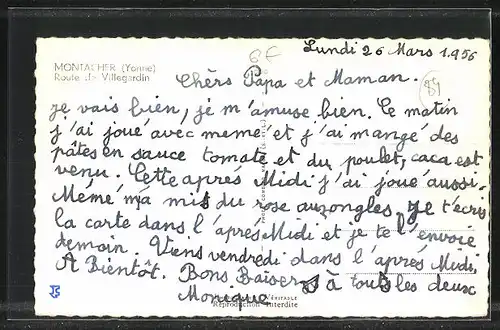 6F
Lundi 26 Mars 1956
MONTACHER (Yonne)
Route de Villegardin
Chèrs Papa et Maman.
84
je vais bien, je m'amuse bien. Ce matin
j'ai joué avec meme et j'ai mangé des
pâtes en sauce tomate et du poulet, caca est
venu. Cette aprés Midi j'ai joué aussi.
Mémé m'a mis du rose auzongles, je t'écris
la carte dans l'aprés Midi et je te l'envoie
demain. Viens vendredi dans l'aprés Midi.
A Bientôt. Bons Baisers à touts les deux
Monique
VÉRITABLE
Reproduction Interdite